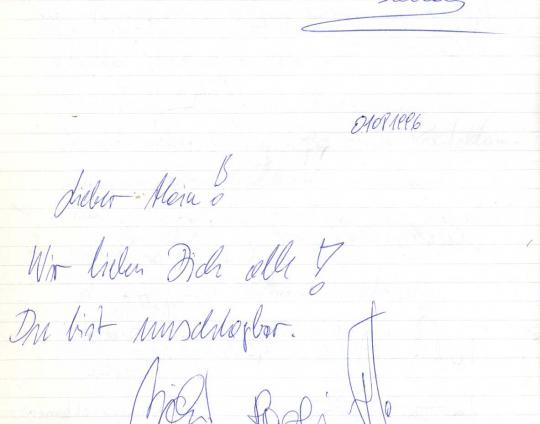 01081996
Lieber Alain!
Wir lieben Dich alle!
Du bist unschlagbar.